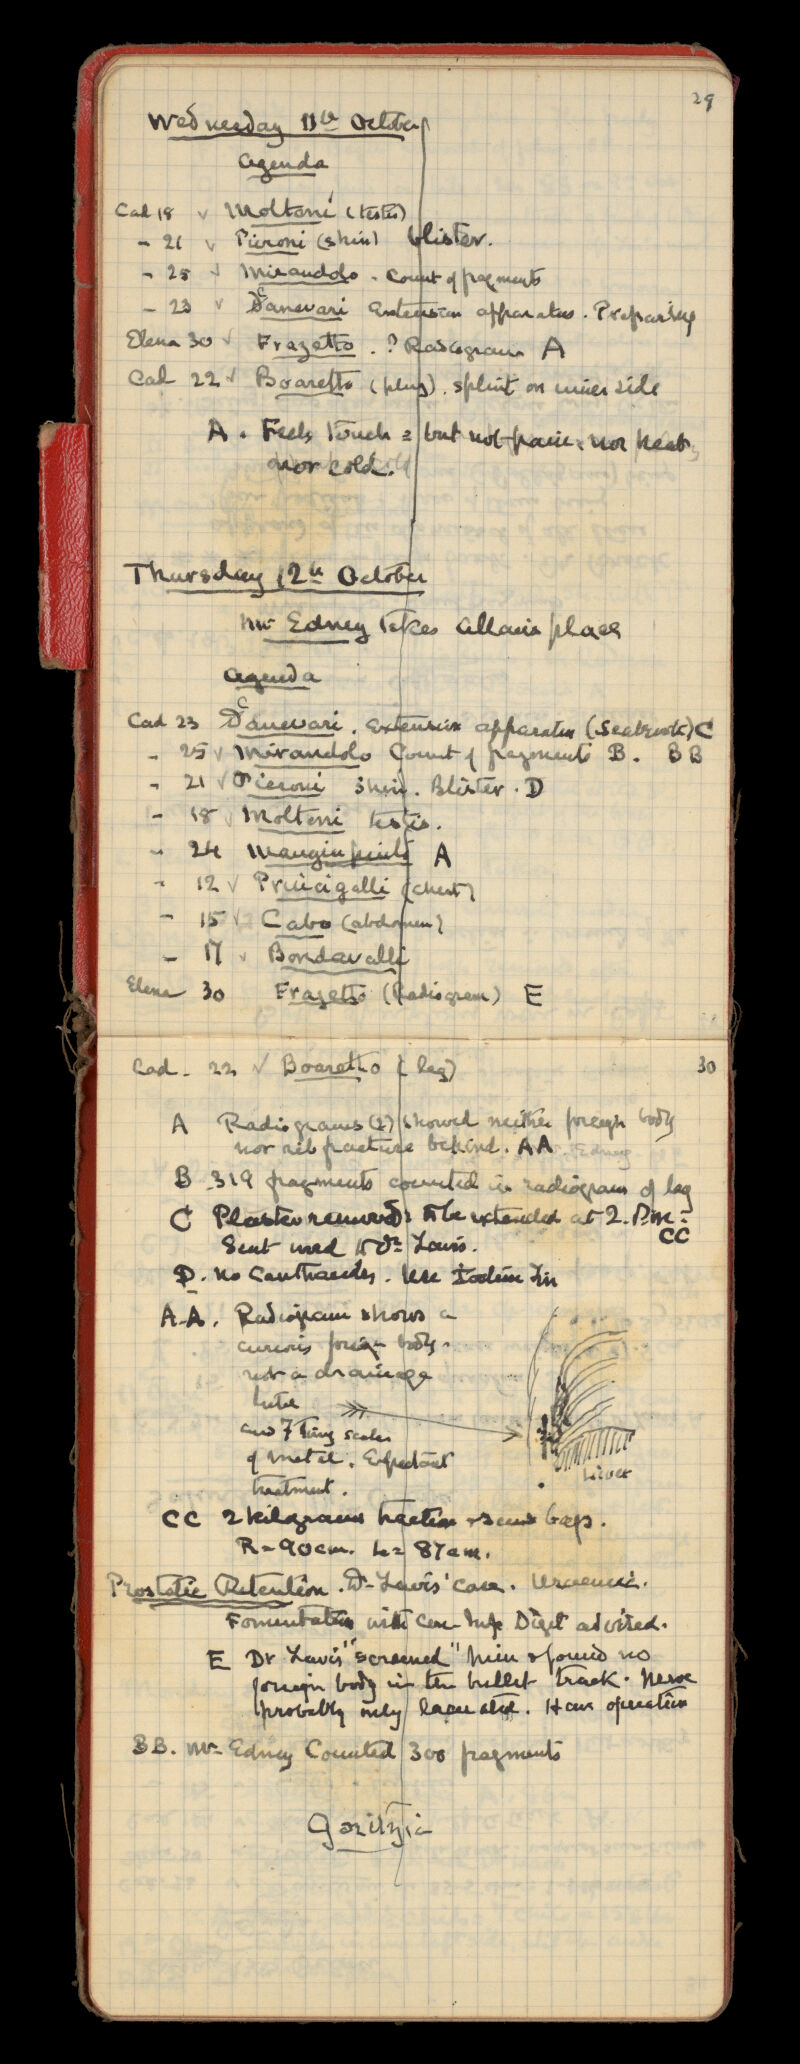 29
Wednesday 11th October
agenda
Cad 18 v Moltoni (testis)
- 21 v Pieroni (shin) blister.
- 25 v Mirandolo - Count of fragments
- 23 v Canevari Extension apparatus. Preparing
Elena 30 v Frazetto . ? Radiogram A
Cad 22 v Boaretto (plug). splint on inner side
A. Feels touch = but not pain, nor heat,
nor cold.
Thursday 12th October
Mr Edney takes Allan's place
agenda
Cad 23 Canevari. Extension apparatus C
- 25 v Mirandolo Count of fragments B. BB
- 21 v Pieroni shin. Blister. D
- 18 v Moltoni testis.
- 24 A
- 12 v Principalli (chest)
- 15 v Cabo (abdomen)
- 17 v Bondavalli
Elena 30 Frazetto (Radiogram) E
Cad - 22 v Boaretto (leg)
30
A Radiograms (2) showed neither foreign body
nor rib fracture behind. AA
B 319 fragments counted in radiogram of leg
C Plaster removed: to be extended at 2. P.m:
Sent word to Dr Lewis. CC
D. No Cantharides. Use Iodine Tin
A-A. Radiogram shows a
curious foreign body -
not a drainage
tube
and 7 tiny scales
of metal. Expectant
treatment.
Liver
CC 2 kilograms traction + sand bags.
R = 90 cm. L = 87 cm.
Prostatic Retention. Dr Lewis' case. Uraemia.
Fomentation with Conc Inf Digit advised.
E Dr Lewis "screened" him & found no
foreign body in the bullet track. Nerve
probably only lacerated. Have operation
BB. Mr Edney Counted 300 fragments
Goritzia